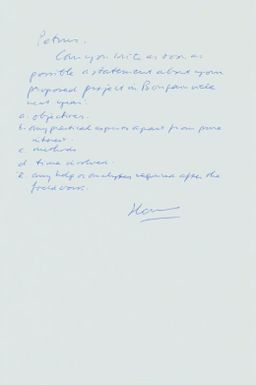 Peter.
Can you write as soon as
possible a statement about your
proposed project in Bougainville
next year.
a. objectives
b. any practical aspects apart from pure
interest.
c. methods
d. time involved.
e. any help or analyses required after the
field work.